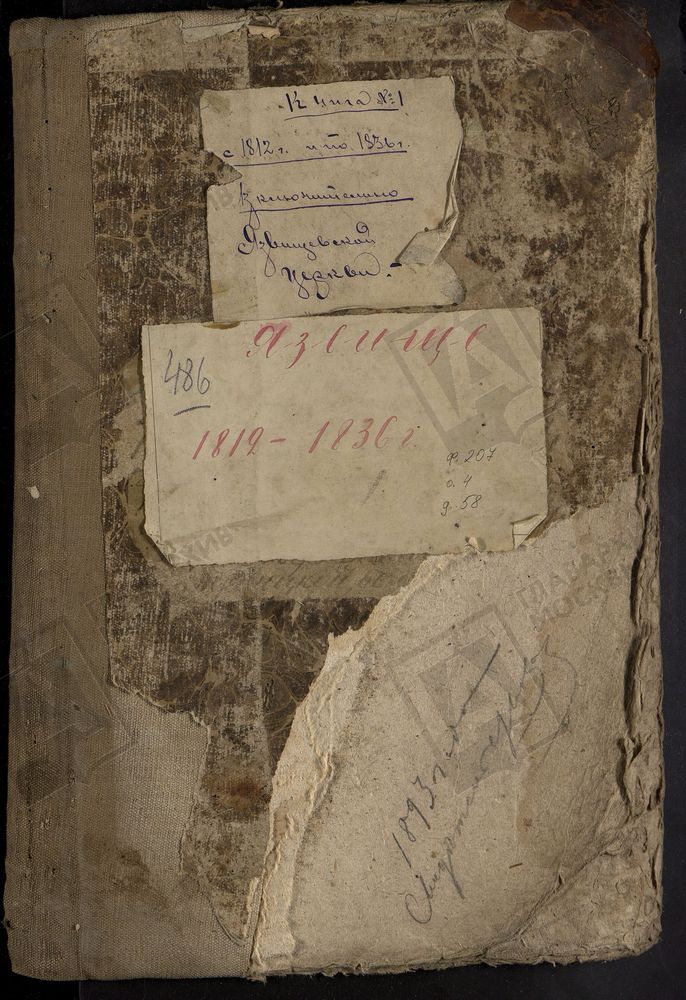 Книга №1
с 1812 г. и по 1836 г.
Включительно
Язвищевской
Церкви.
Язвище
486
1812 – 1836 г.
ф. 207
о. 4
д. 58
1893 года